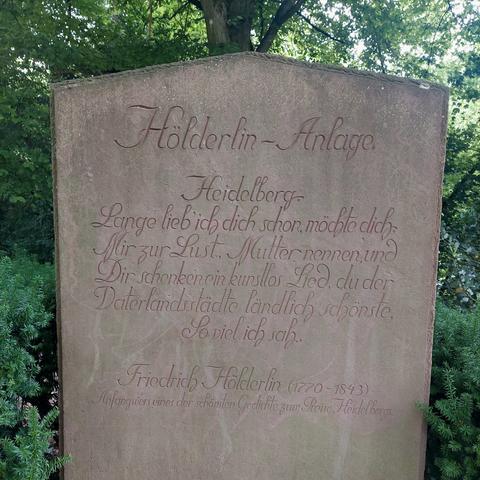 Hölderlin-Anlage.
Heidelberg.
Lange lieb' ich dich schon, möchte dich,
Mir zur Lust, Mutter nennen, und
Dir schenken ein kunstlos Lied, du der
Vaterlandsstädte ländlich schönste,
So viel ich sah.
Friedrich Hölderlin (1770-1843)
Anfangsvers eines der schönsten Gedichte zum Preise Heidelbergs